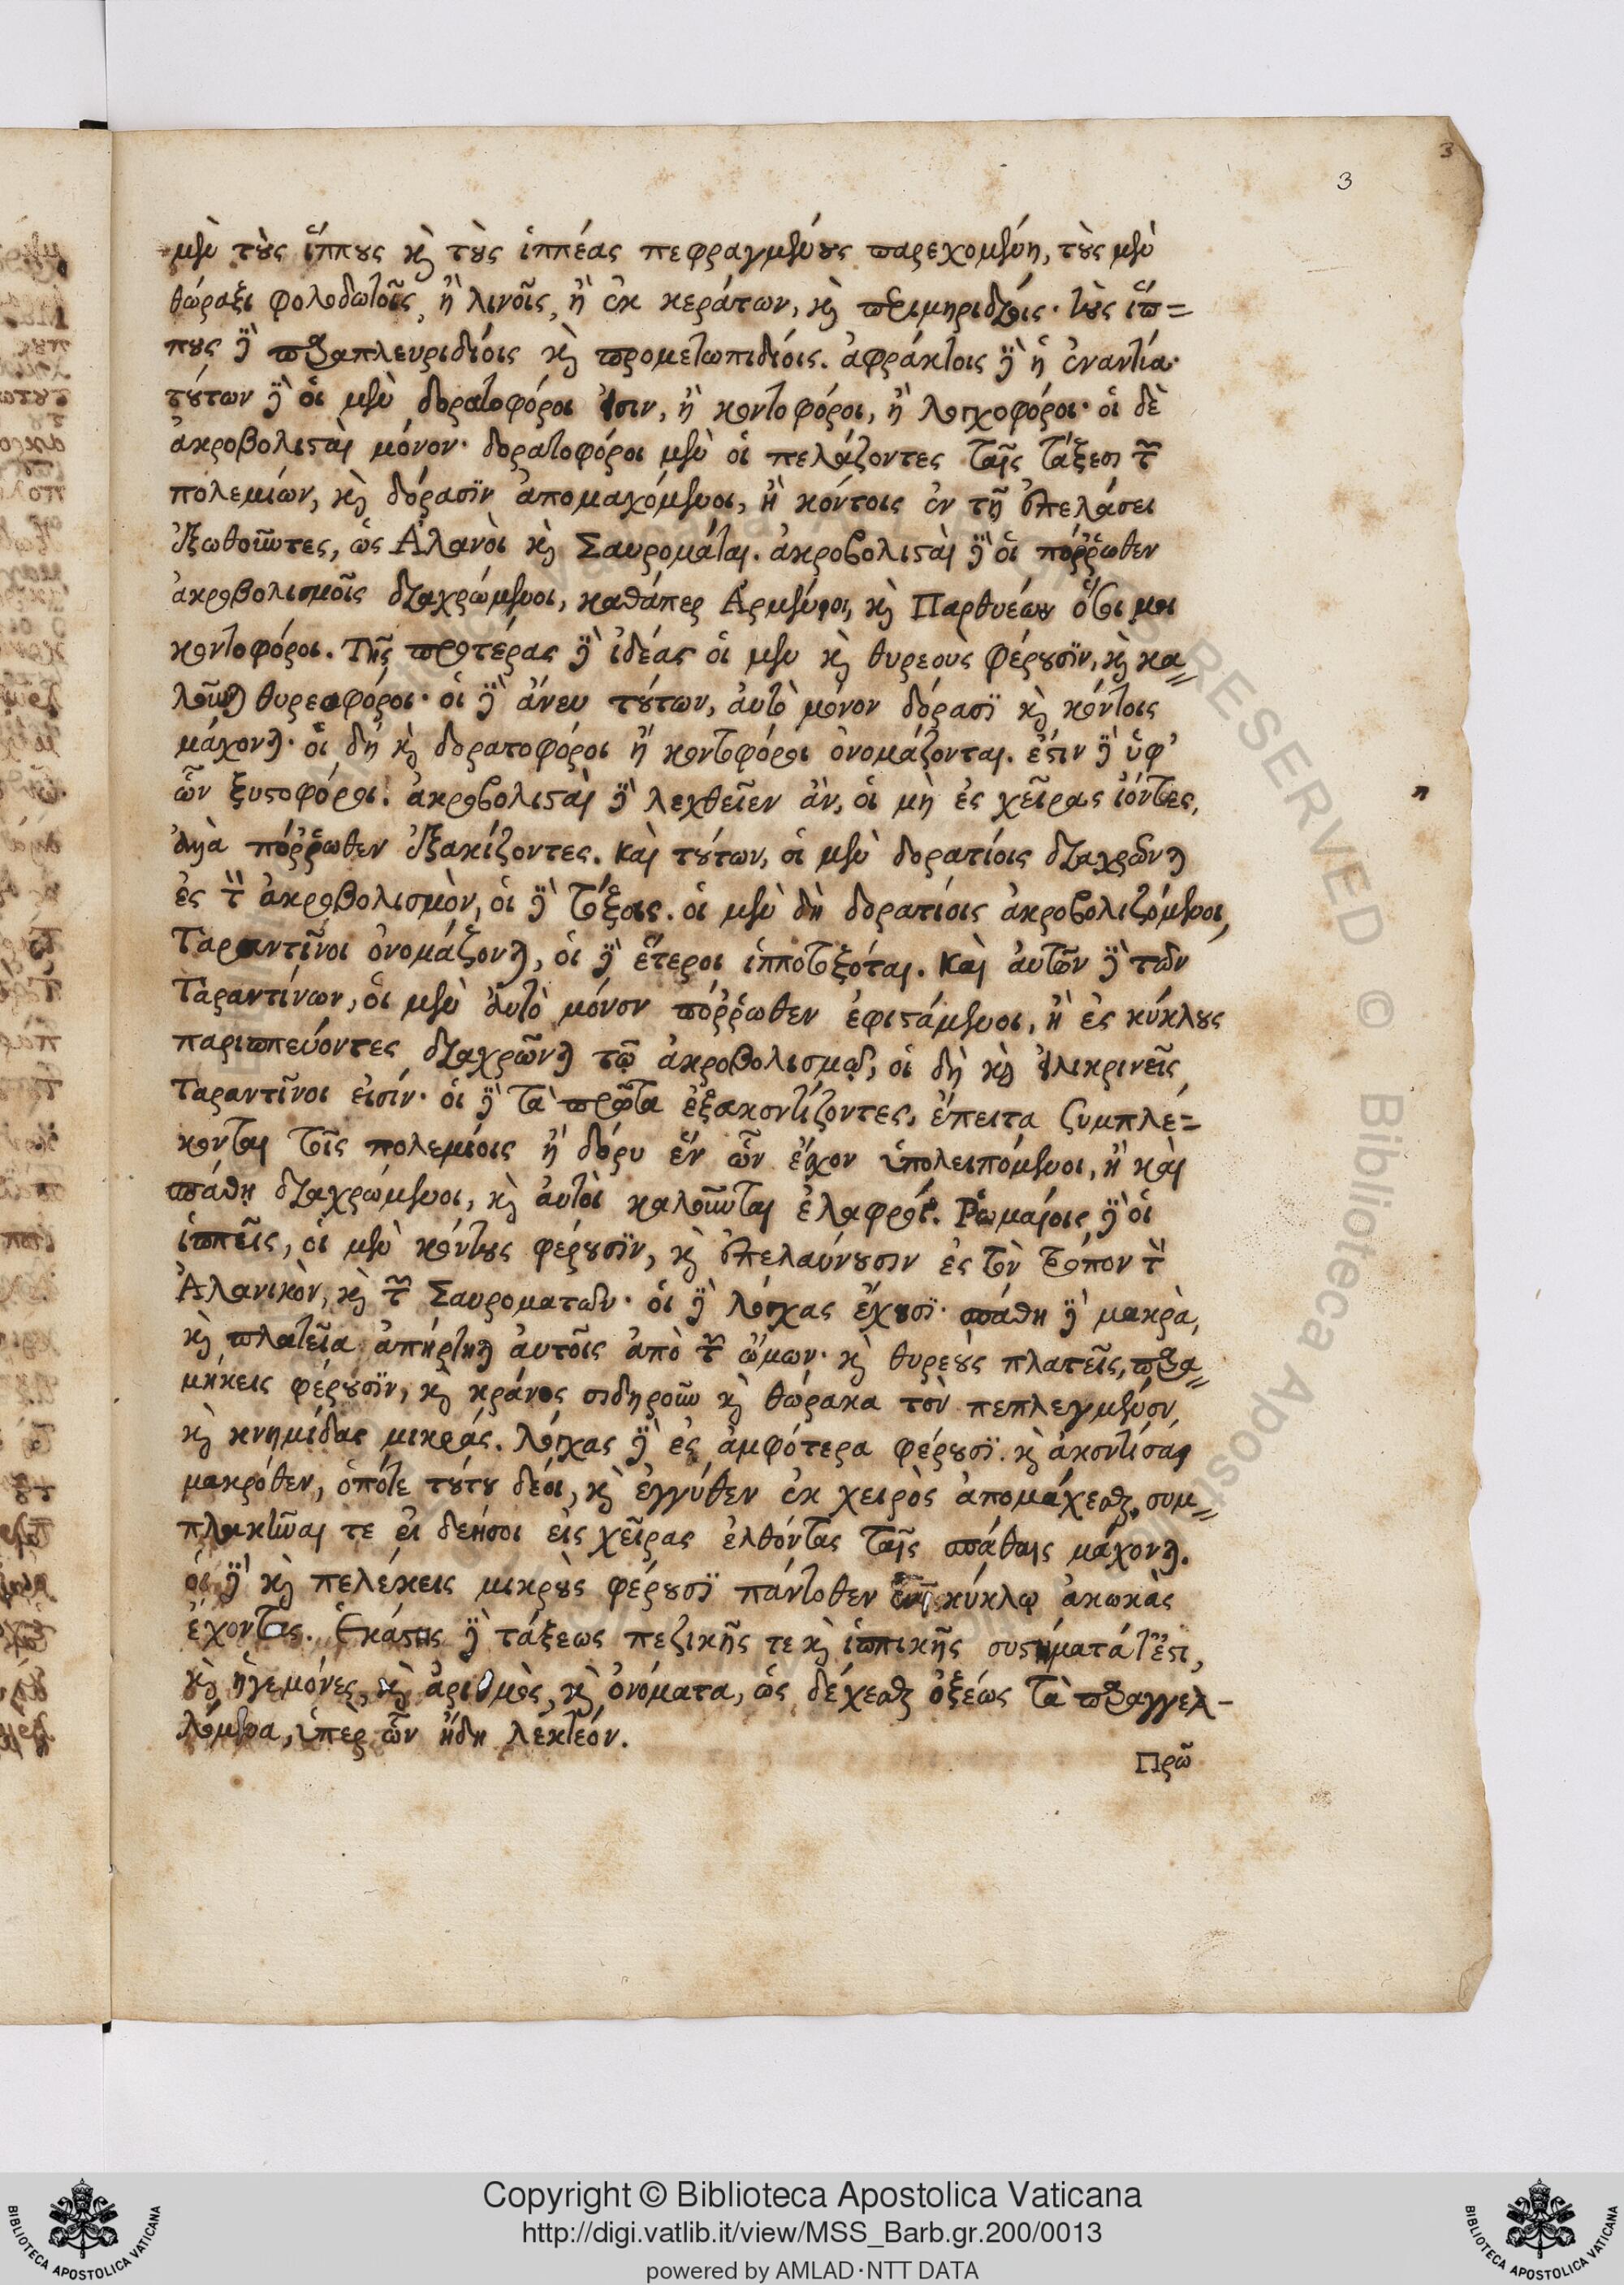 3
3
μὲν τοὺς ἵππους καὶ τοὺς ἱππέας πεφραγμένους παρεχομένη, τοὺς μὲν
θώραξι φολιδωτοῖς, ἢ λινοῖς, ἢ ἐκ κεράτων, καὶ παραμηριδίοις· τοὺς ἵπ=
πους δὲ παραπλευριδίοις καὶ προμετωπιδίοις. ἀφράκτοις δὲ ἡ ἐναντία·
τούτων δὲ οἱ μὲν δορατοφόροι εἰσιν, ἢ κοντοφόροι, ἢ λογχοφόροι· οἱ δὲ
ἀκροβολισταὶ μόνον· δορατοφόροι μὲν οἱ πελάζοντες ταῖς τάξεσι τῶν
πολεμίων, καὶ δόρασϊν ἀπομαχόμενοι, ἢ κόντοις ἐν τῇ ἐπελάσει
ἐξωθοῦντες, ὡς Ἀλανοὶ καὶ Σαυρομάται. ἀκροβολισταὶ δὲ οἱ πόῤῥωθεν
ἀκροβολισμοῖς διαχρώμενοι, καθάπερ Ἀρμένιοι, καὶ Παρθυέων ὅσοι μὴ
κοντοφόροι. Τῆς προτέρας δὲ ἰδέας οἱ μὲν καὶ θυρεοὺς φέρουσϊν, καὶ κα=
λοῦνται θυρεοφόροι· οἱ δὲ ἄνευ τούτων, αὐτὸ μόνον δόρασϊ καὶ κόντοις
μάχονται· οἳ δὴ καὶ δορατοφόροι ἢ κοντοφόροι ὀνομάζονται. ἔστιν δὲ ὑφ'
ὧν ξυστοφόροι. ἀκροβολισταὶ δὲ λεχθεῖεν ἂν, οἱ μὴ ἐς χεῖρας ἰόντες,
ἀλλὰ πόῤῥωθεν ἐξακίζοντες. Καὶ τούτων, οἱ μὲν δορατίοις διαχρῶνται
ἐς τὸν ἀκροβολισμὸν, οἱ δὲ τόξοις. οἱ μὲν δὴ δορατίοις ἀκροβολιζόμενοι,
Ταραντῖνοι ὀνομάζονται, οἱ δὲ ἕτεροι ἱπποτοξόται. Καὶ αὐτῶν δὲ τῶν
Ταραντίνων, οἱ μὲν αὐτὸ μόνον πόῤῥωθεν ἐφιστάμενοι, ἢ ἐς κύκλους
παριππεύοντες διαχρῶνται τῷ ἀκροβολισμῷ, οἱ δὴ καὶ εἰλικρινεῖς
Ταραντῖνοι εἰσίν· οἱ δὲ τὰ πρῶτα ἐξακοντίζοντες, ἔπειτα συμπλέ=
κονται τοῖς πολεμίοις ἢ δόρυ ἓν ὧν ἔχον ὑπολειπόμενοι, ἢ καὶ
σπάθῃ διαχρώμενοι, καὶ αὐτοὶ καλοῦνται ἐλαφροί. Ῥωμαίοις δὲ οἱ
ἱππεῖς, οἱ μὲν κόντους φέρουσϊν, καὶ ἐπελαύνουσιν ἐς τὸν τρόπον τὸν
Ἀλανικὸν, καὶ τῶν Σαυροματῶν· οἱ δὲ λόγχας ἔχουσϊ· σπάθη δὲ μακρὰ,
καὶ πλατεῖα ἀπήρτηται αὐτοῖς ἀπὸ τῶν ὤμων· καὶ θυρεοὺς πλατεῖς, παρα=
μήκεις φέρουσϊν, καὶ κράνος σιδηροῦν καὶ θώρακα τὸν πεπλεγμένον,
καὶ κνημίδας μικράς. λόγχας δὲ ἐς ἀμφότερα φέρουσϊ. καὶ ἀκοντίσαι
μακρόθεν, ὁπότε τούτου δέοι, καὶ ἐγγύθεν ἐκ χειρὸς ἀπομάχεσθαι, συμ=
πλακῆναι τε εἰ δεήσοι εἰς χεῖρας ἐλθόντας ταῖς σπάθαις μάχονται.
οἱ δὲ καὶ πελέκεις μικροὺς φέρουσϊ πάντοθεν κύκλῳ ἀκωκὰς
ἔχοντας. Ἑκάστης δὲ τάξεως πεζικῆς τε καὶ ἱππικῆς συστήματά τέ ἐστι,
καὶ ἡγεμόνες, καὶ ἀριθμὸς, καὶ ὀνόματα, ὡς δέχεσθαι ὀξέως τὰ παραγγελ-
λόμενα, ὑπὲρ ὧν ἤδη λεκτέον.
Πρῶ
Copyright © Biblioteca Apostolica Vaticana
http://digi.vatlib.it/view/MSS_Barb.gr.200/0013
powered by AMLAD·NTT DATA
BIBLIOTECA APOSTOLICA VATICANA
BIBLIOTECA APOSTOLICA VATICANA